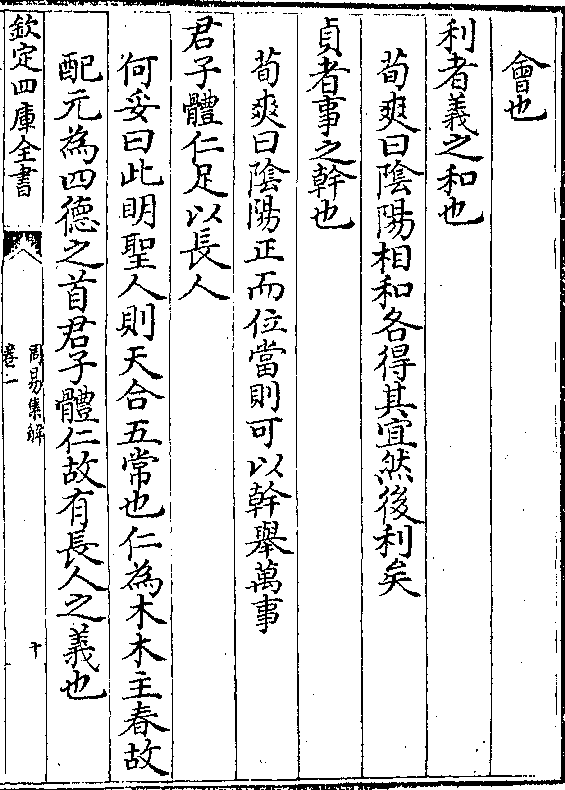 會也
利者義之和也
荀爽曰陰陽相和各得其宜然後利矣
貞者事之幹也
荀爽曰陰陽正而位當則可以幹舉萬事
君子體仁足以長人
何妥曰此明聖人則天合五常也仁為木木主春故
配元為四德之首君子體仁故有長人之義也
欽定四庫全書
周易集解
卷一
十